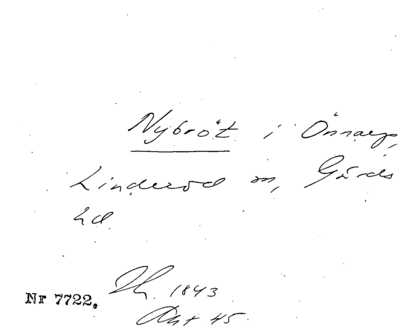 Nybröt i Önnarp,
Linderöd sn, Gärds
hd.
Nr 7722. 1843
Akt 45.